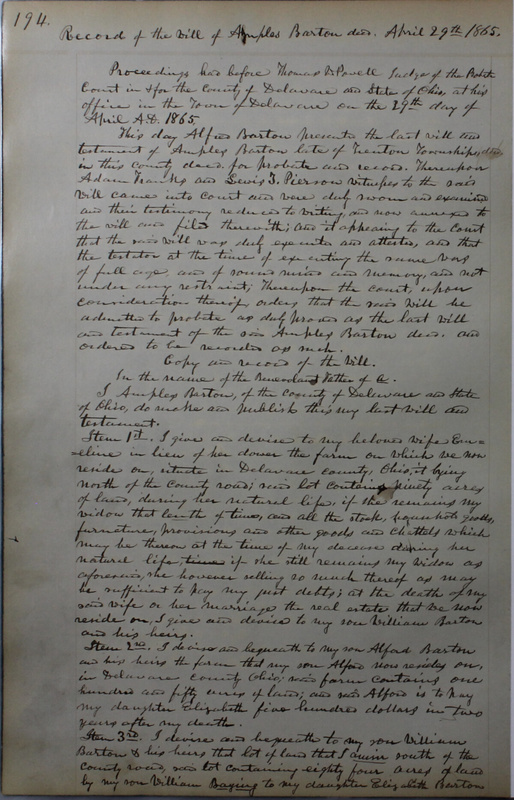 194.
Record of the Will of Amples Barton decd. April 29th 1865.
Proceedings had before Thomas W Powell Judge of the Probate
Court in & for the County of Delaware and State of Ohio, at his
office in the Town of Delaware on the 29th day of
April A.D. 1865
This day Alfred Barton presents the last will and
testament of Amples Barton late of Trenton Township, decd
in this county decd. for probate and record. Thereupon
Adam Franks and Lewis T. Pierson witnesses to the said
Will came into Court and were duly sworn and examined
and their testimony reduced to writing, and now annexed to
the will and filed therewith; and it appearing to the Court
that the said will was duly executed and attested, and that
the testator at the time of executing the same was
of full age, and of sound mind and memory, and not
under any restraint; Thereupon the court, upon
consideration thereof, orders that the said Will be
admitted to probate as duly proved as the last will
and testament of the said Amples Barton decd. and
ordered to be recorded as such.
Copy and record of the Will.
In the name of the Benevolent Father of &c.
I Amples Barton, of the County of Delaware and State
of Ohio, do make and publish this my last will and
testament.
Item 1st. I give and devise to my beloved wife Em=
eline in lieu of her dower the farm on which we now
reside on, situate in Delaware county, Ohio, it lying
north of the County road; said lot containing ninety acres
of land, during her natural life, if she remains my
widow that length of time, and all the stock, household goods,
furnature, provisions and other goods and chattels which
may be thereon at the time of my decease during her
natural life, time if she still remains my widow as
aforesaid, she however selling so much thereof as may
be sufficient to pay my just debts; at the death of my
said wife or her marriage the real estate that we now
reside on, I give and devise to my son William Barton
and his heirs.
Item 2nd. I devise and bequeath to my son Alford Barton
and his heirs the farm that my son Alford now resides on,
in Delaware county Ohio; said farm contains one
hundred and fifty acres of land; and said Alford is to pay
my daughter Elizabeth five hundred dollars in two
years after my death.
Item 3rd. I devise and bequeath to my son William
Barton & his heirs that lot of land that I own south of the
county road, said lot containing eighty four acres of land
by my son William paying to my daughter Elizabeth Barton